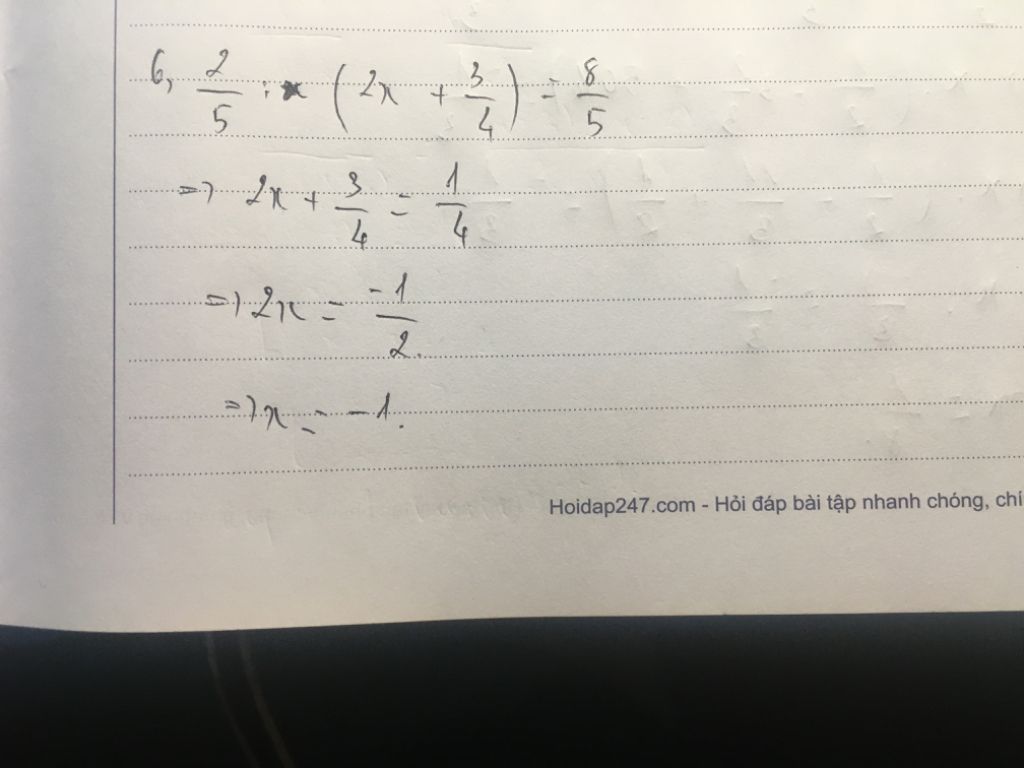 6, 2/5 : (2x + 3/4) = 8/5
=> 2x + 3/4 = 1/4
=> 2x = -1/2.
=> x = -1.
Hoidap247.com - Hỏi đáp bài tập nhanh chóng, chí